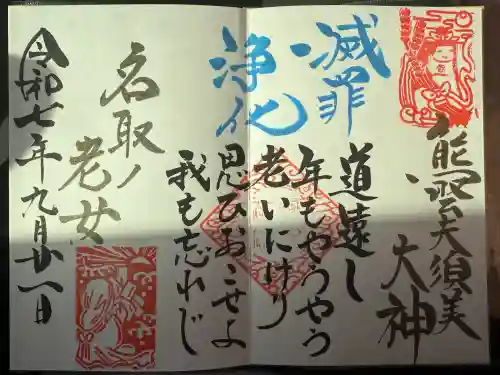 熊野夫須美
大神
滅罪
浄化
道遠し
年もやうやう
老いにけり
思ひおこせよ
我も忘れじ
名取ノ
老女
令和七年九月廿一日